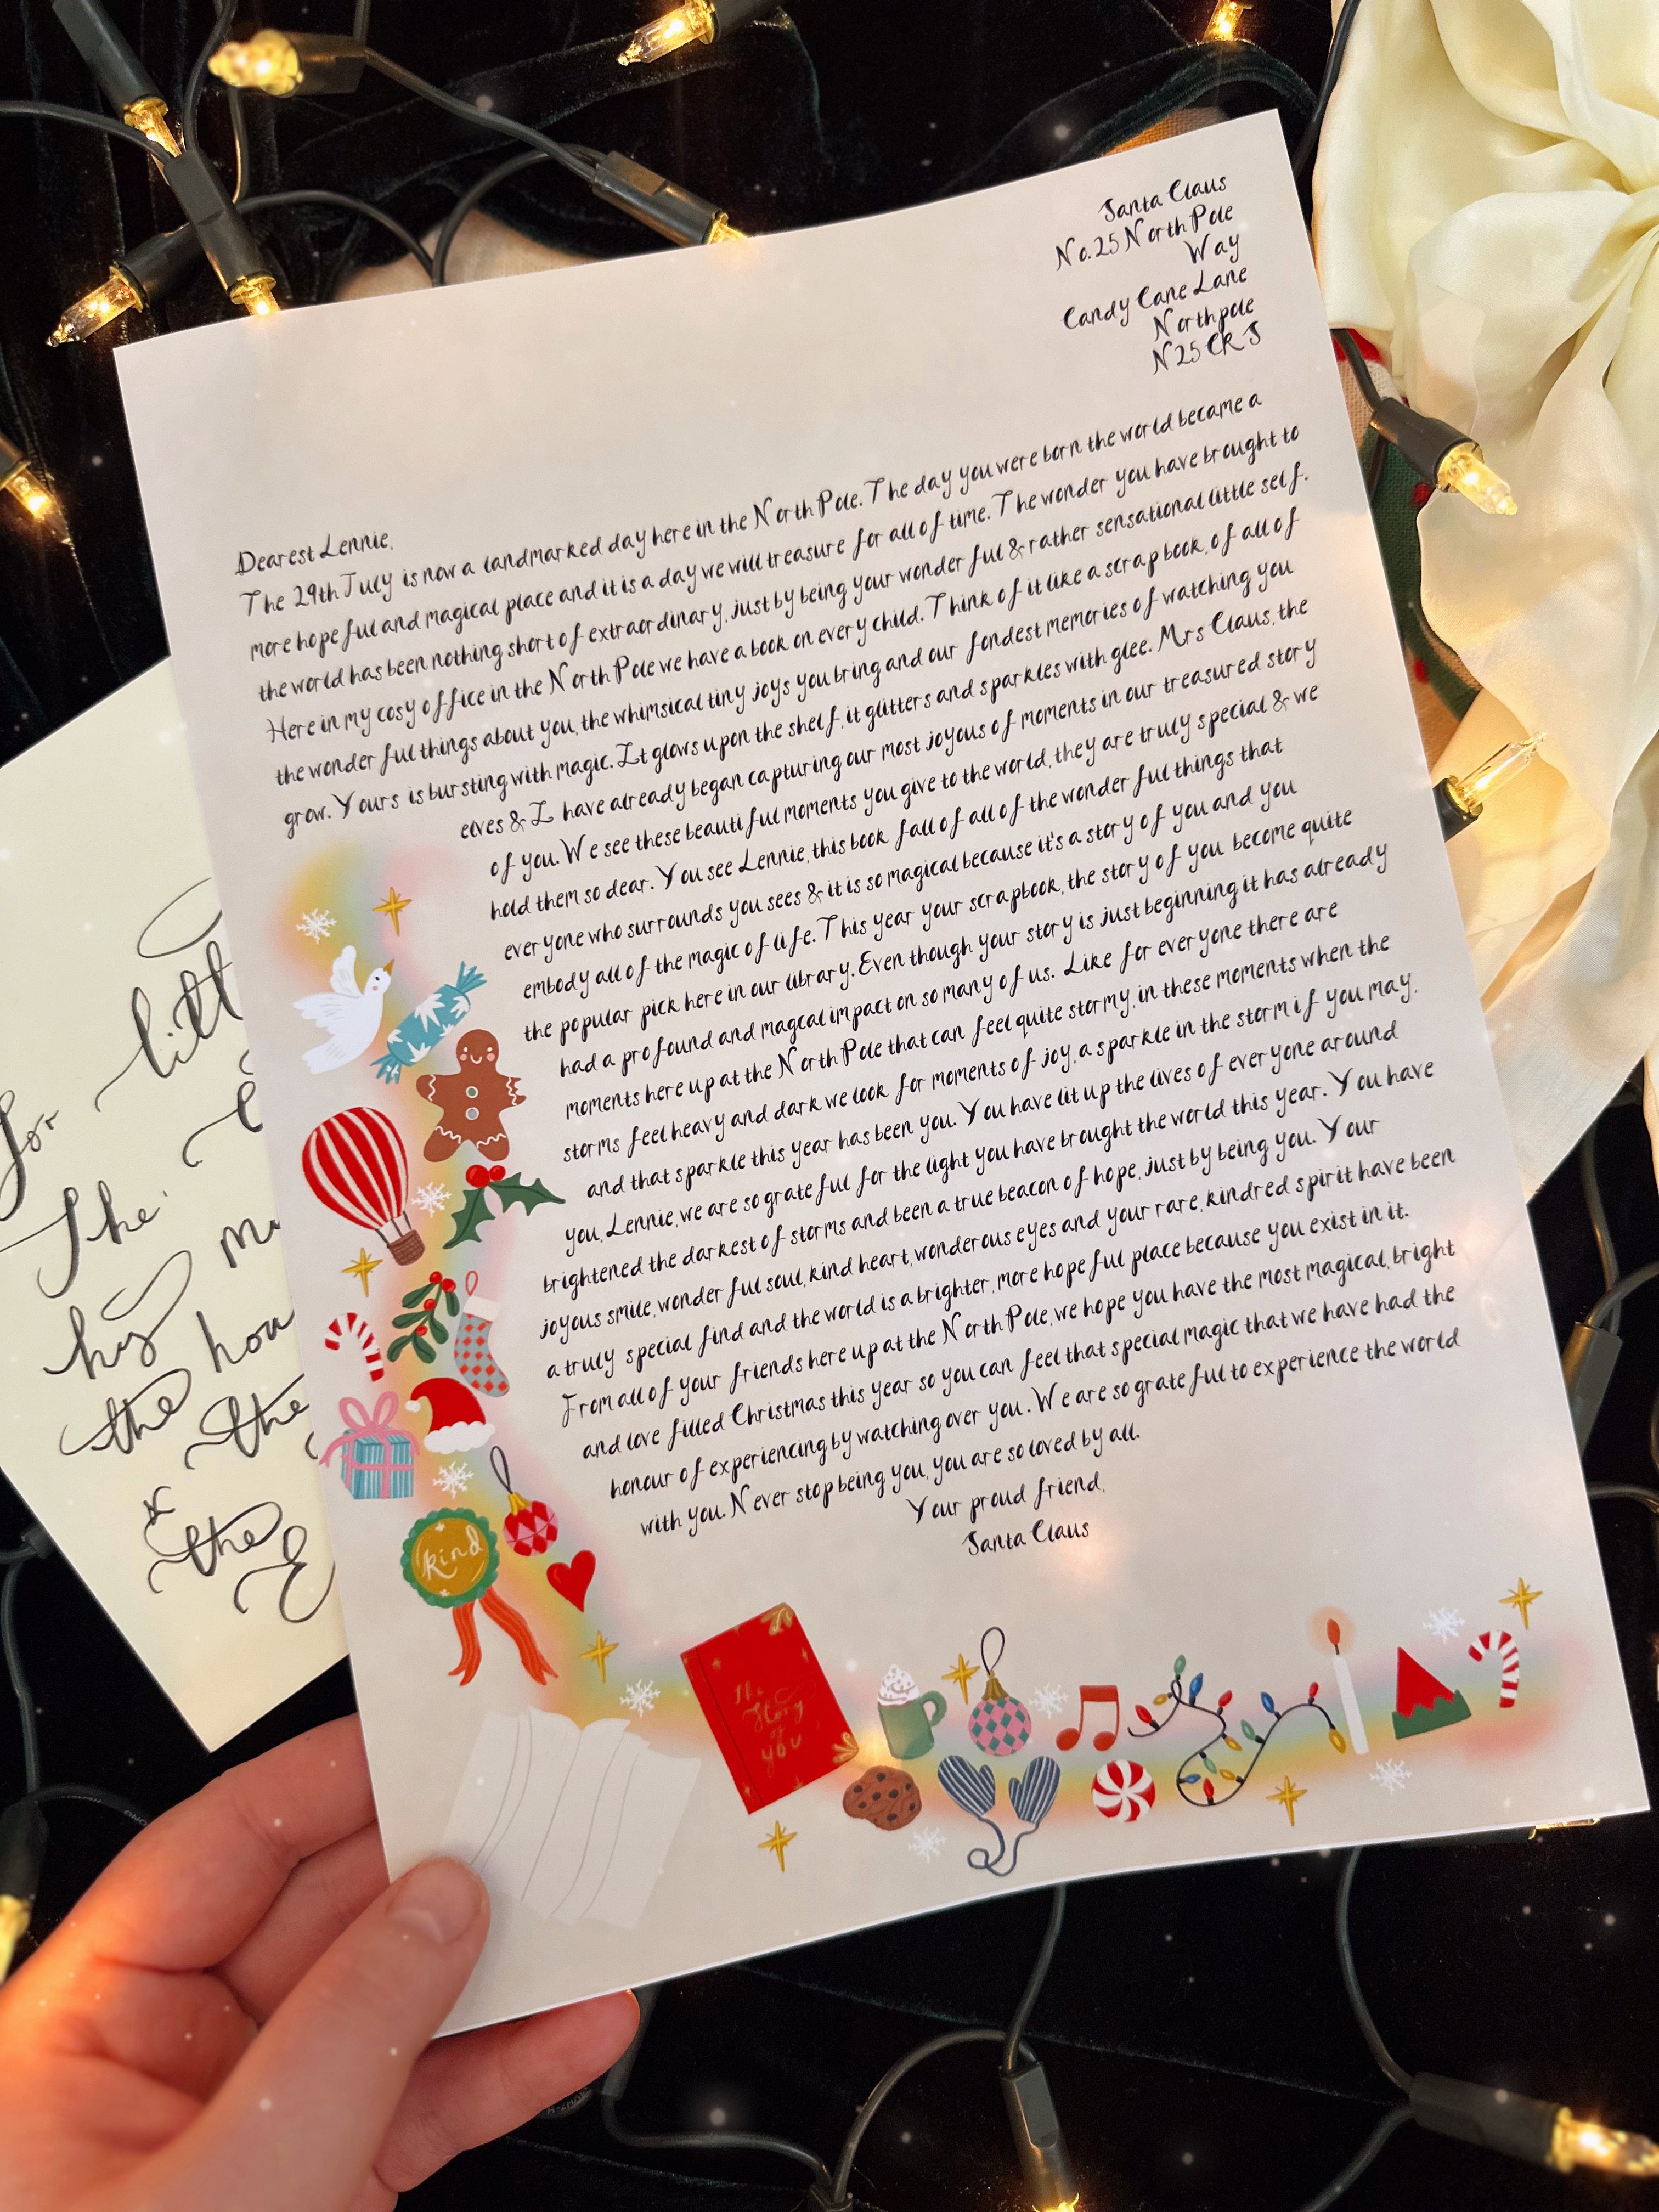 Santa Claus
No.25 North Pole
Way
Candy Cane Lane
Northpole
N25 CRJ
Dearest Lennie,
The 29th July is now a landmarked day here in the North Pole. The day you were born the world became a
more hopeful and magical place and it is a day we will treasure for all of time. The wonder you have brought to
the world has been nothing short of extraordinary, just by being your wonderful & rather sensational little self.
Here in my cosy office in the North Pole we have a book on every child. Think of it like a scrapbook, of all of
the wonderful things about you, the whimsical tiny joys you bring and our fondest memories of watching you
grow. Yours is bursting with magic. It glows upon the shelf, it glitters and sparkles with glee. Mrs Claus, the
elves & I have already began capturing our most joyous of moments in our treasured story
of you. We see these beautiful moments you give to the world, they are truly special & we
hold them so dear. You see Lennie, this book fall of all of the wonderful things that
everyone who surrounds you sees & it is so magical because it's a story of you and you
embody all of the magic of life. This year your scrapbook, the story of you become quite
the popular pick here in our library. Even though your story is just beginning it has already
had a profound and magcal impact on so many of us. Like for everyone there are
moments here up at the North Pole that can feel quite stormy, in these moments when the
storms feel heavy and dark we look for moments of joy, a sparkle in the storm if you may,
and that sparkle this year has been you. You have lit up the lives of everyone around
you, Lennie, we are so grateful for the light you have brought the world this year. You have
brightened the darkest of storms and been a true beacon of hope, just by being you. Your
joyous smile, wonderful soul, kind heart, wonderous eyes and your rare, kindred spirit have been
a truly special find and the world is a brighter, more hopeful place because you exist in it.
From all of your friends here up at the North Pole, we hope you have the most magical, bright
and love filled Christmas this year so you can feel that special magic that we have had the
honour of experiencing by watching over you. We are so grateful to experience the world
with you. Never stop being you, you are so loved by all.
Your proud friend,
Santa Claus
kind
The
Story
of
you
for
The
his
the
the
&
the